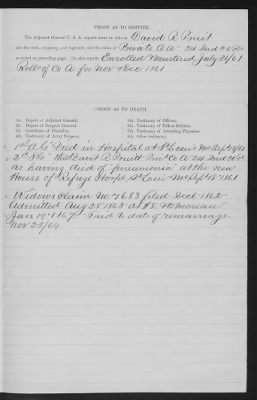 PROOF AS TO SERVICE.
The Adjutant General U. S. A. reports name on rolls as David R Pruit
also the rank, company, and regiment, and the dates of Private Co A 24 Ind Vols
as stated on preceding page. He also reports, Enrolled Mustered July 31/61
Rolls of Co A for Nov & Dec 1861
PROOF AS TO DEATH.
1st. Report of Adjutant General.
2d. Report of Surgeon General.
3d. Certificate of Disability.
4th. Testimony of Army Surgeon.
5th. Testimony of Officers.
6th. Testimony of Fellow Soldiers.
7th. Testimony of Attending Physician.
8th. Other testimony.
1st A.G. "Died in Hospital at St Louis Mo Sept /61
2d S.G. that David R Pruitt Priv Co A 24 Ind Vol
as having died of "pneumonia" at the new
House of Refuge Hosp. St Louis Mo Sept 18 1861
Widows claim No 7683 filed Dec 1862
Admitted Aug 28 1863 at $8. & increase
Jan 19 1867 Paid to date of remarriage
Nov 25/69